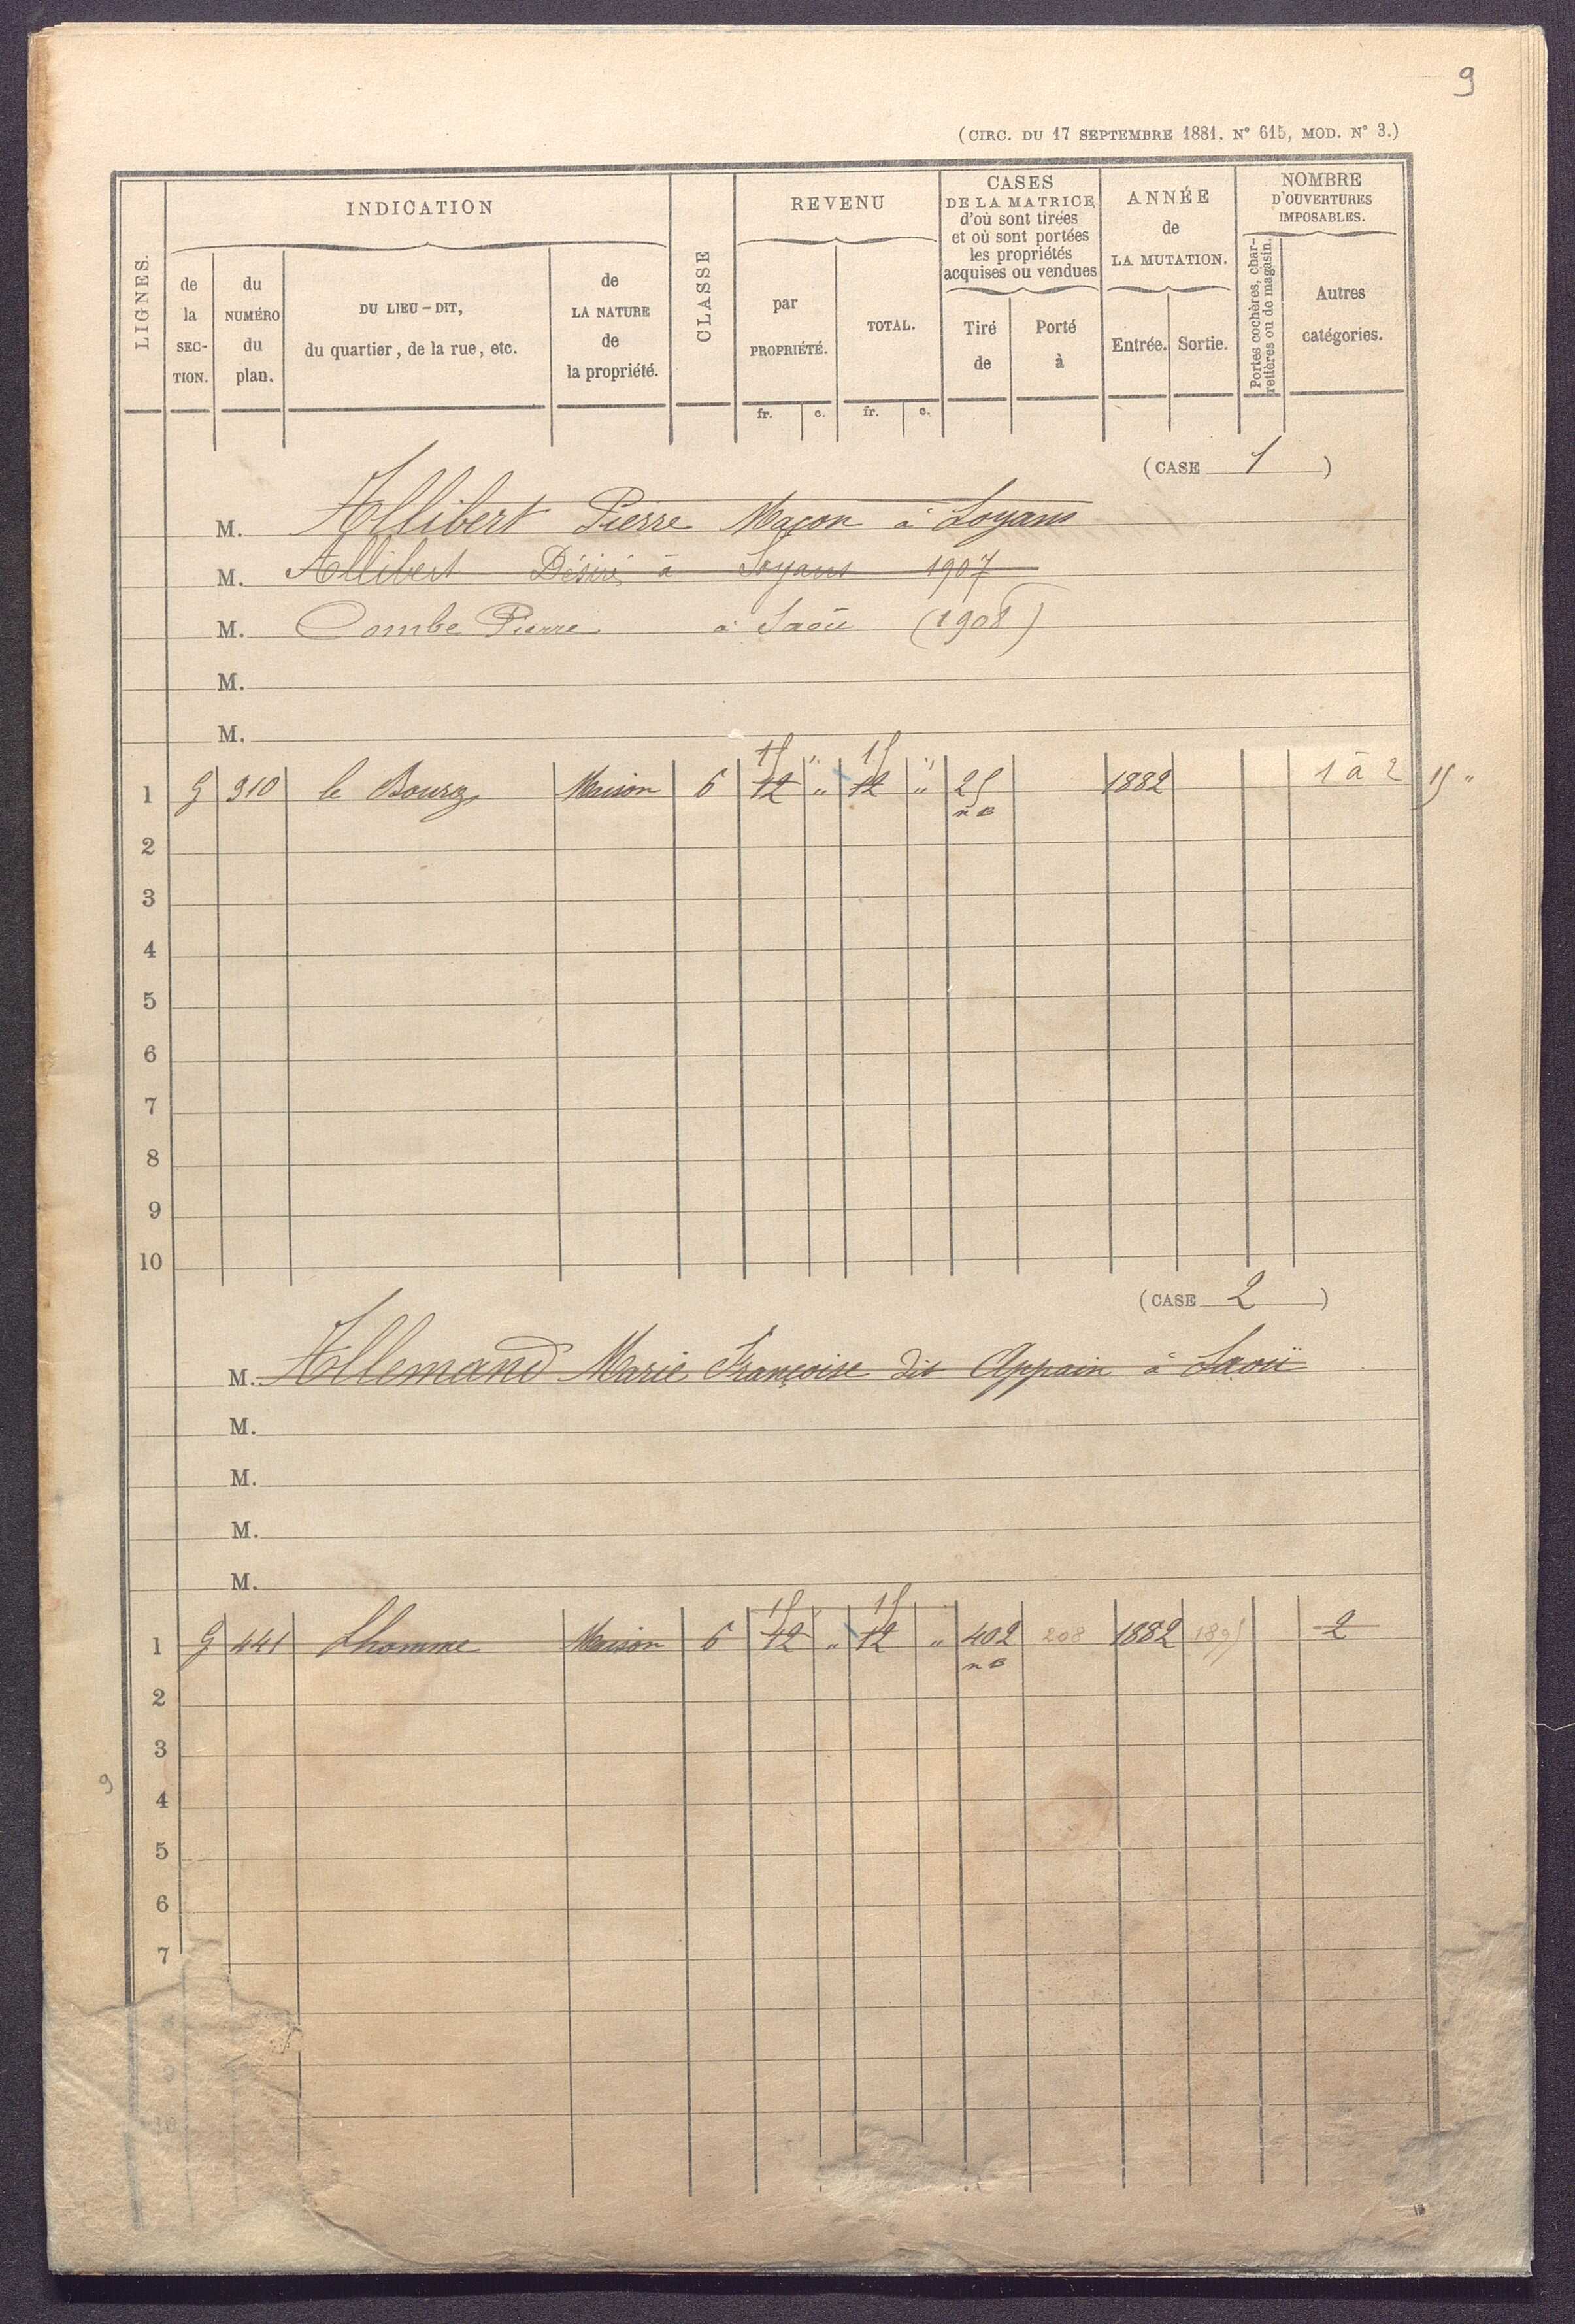 9
(CIRC. DU 17 SEPTEMBRE 1881. N° 615, MOD. N° 3.)
LIGNES.
INDICATION
de la SEC-TION.
du NUMÉRO du plan.
DU LIEU-DIT, du quartier, de la rue, etc.
de LA NATURE de la propriété.
CLASSE
REVENU
par PROPRIÉTÉ.
TOTAL.
CASES DE LA MATRICE d'où sont tirées et où sont portées les propriétés acquises ou vendues
Tiré de
Porté à
ANNÉE de LA MUTATION.
Entrée. Sortie.
NOMBRE D'OUVERTURES IMPOSABLES.
Portes cochères, char-retières ou de magasin.
Autres catégories.
fr. c. fr. c.
(CASE 1)
M. Allibert Pierre Maçon à Soyans
M. Allibert Désiré à Soyans 1907
M. Combe Pierre à Saoû (1908)
M.
M.
15 " 15 "
1 G 310 le Bourg Maison 6 12 " 12 " 25 1882 1 à 2 15 "
n B
2
3
4
5
6
7
8
9
10
(CASE 2)
M. Allemand Marie Françoise dit Appain à Saoü
M.
M.
M.
M.
15 15
1 G 441 Lhomme Maison 6 12 " 12 " 402 208 1882 1895 2
n B
2
3
9
4
5
6
7
9
10